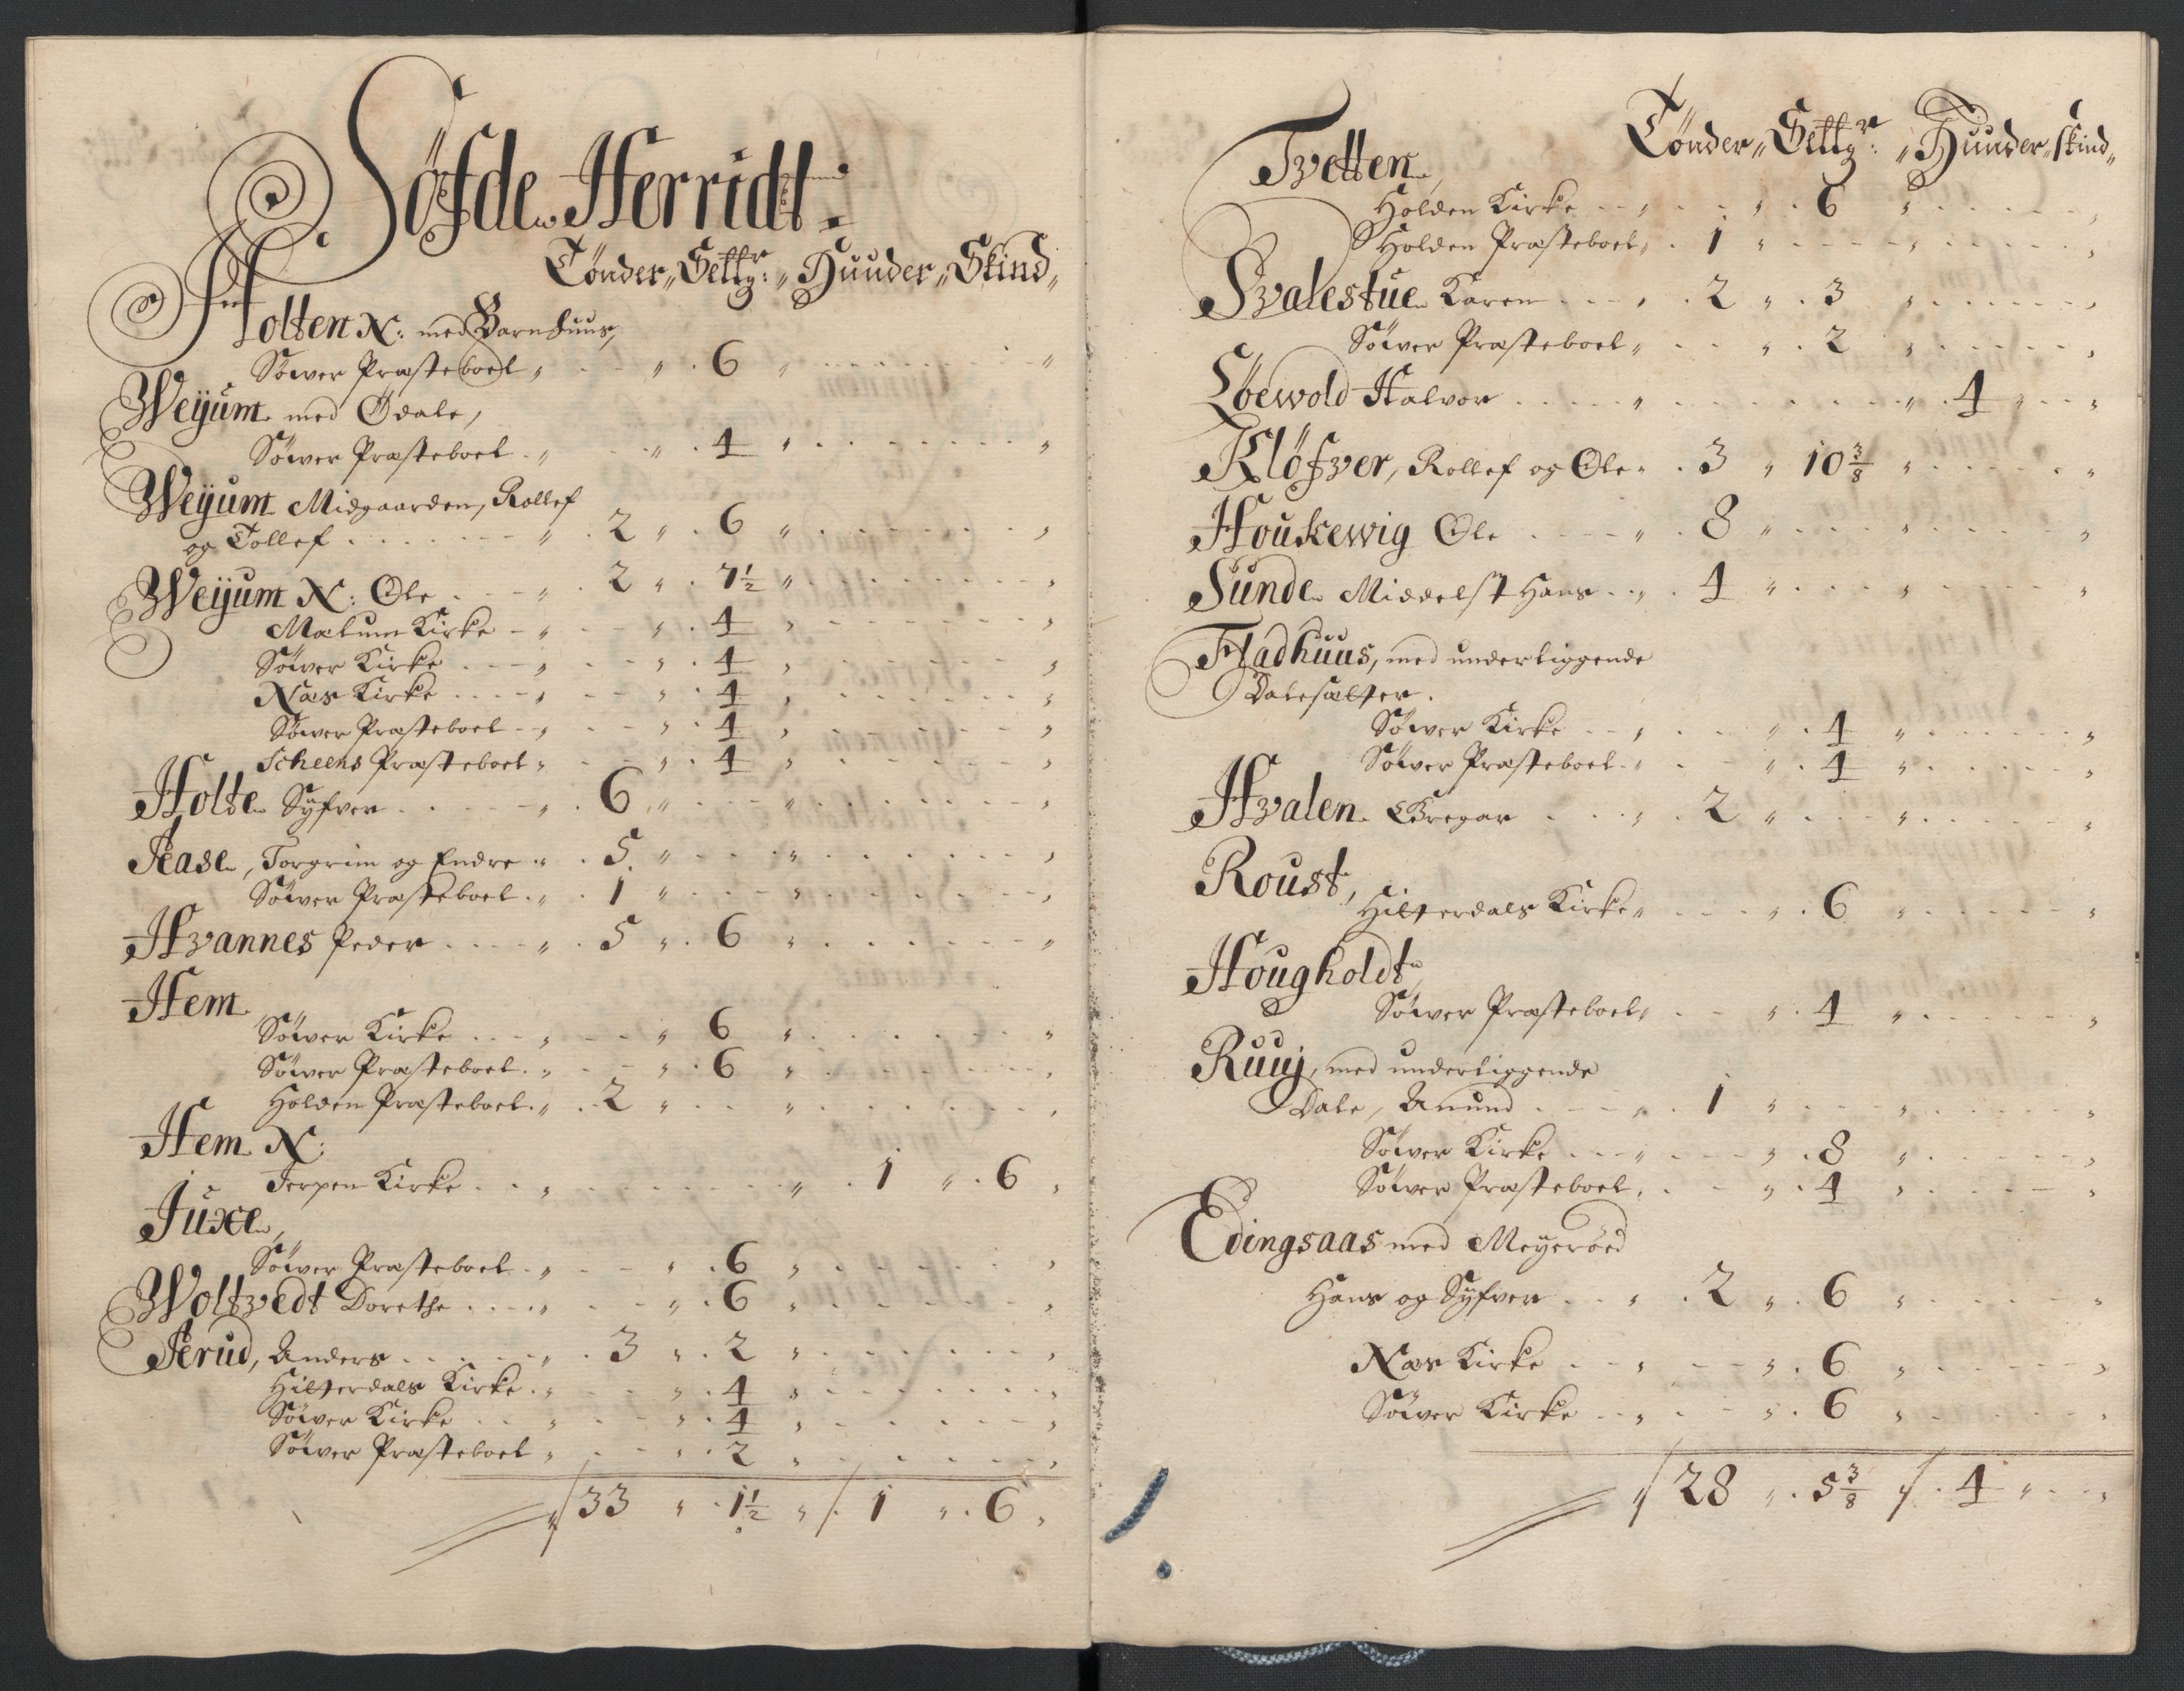 Söfde Herridt
Tönder, Settgr: Huuder, Skind,
Holten N: med Barnhuus,
Söwer Præsteboel „ 6 „
Weÿum med Ödale,
Söwer Præsteboel „ 4 „
Weÿum Midgaarden, Rollef
og Tollef „ 2 „ 6 „
Weÿum N: Ole „ 2 „ 7½ „
Mælum Kirke „ 4 „
Söwer Kirke „ 4 „
Næs Kirke „ 4 „
Söwer Præsteboel „ 4 „
Scheens Præsteboel „ 4 „
Holte Syfver „ 6 „
Aase, Torgrim og Endre „ 5 „
Söwer Præsteboel „ 1 „
Hvannes Peder „ 5 „ 6 „
Hem
Söwer Kirke „ 6 „
Söwer Præsteboel „ 6 „
Holden Præsteboel „ 2 „
Hem N:
Jerpen Kirke „ 1 „ 6 „
Juxe,
Söwer Præsteboel „ 6 „
Woltvedt Dorethe „ 6 „
Aerud, Anders „ 3 „ 2 „
Hitterdals Kirke „ 4 „
Söwer Kirke „ 4 „
Söwer Præsteboel „ 2 „
33 „ 1½ „ 1 „ 6 „
Tönder, Settgr: Huuder, skind,
Tvetten
Holden Kirke „ 6 „
Holden Præsteboel „ 1 „
Svalestue Karen „ 2 „ 3 „
Söwer Præsteboel „ 2 „
Löewold Halvor „ 4 „
Klöfver, Rollef og Ole „ 3 „ 10 3/8 „
Houkewig Ole „ 8 „
Sunde Middelst Hans „ 4 „
Fladhuus, med underliggende
Dalesætter.
Söwer Kirke „ 4 „
Söwer Præsteboel „ 4 „
Hvalen Gregar „ 2 „
Roust,
Hitterdals Kirke „ 6 „
Hougholdt
Söwer Præsteboel „ 4 „
Ruuj, med underliggende
Dale, Amund „ 1 „
Söwer Kirke „ 8 „
Söwer Præsteboel „ 4 „
Edingsaas med Meyeröed
Hans og Syfver „ 2 „ 6 „
Næs Kirke „ 6 „
Söwer Kirke „ 6 „
28 „ 5 3/8 „ 4 „